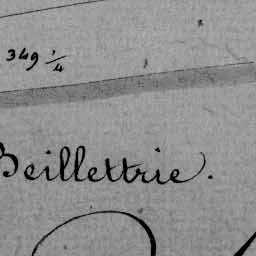 349 1/4
Beillettrie.